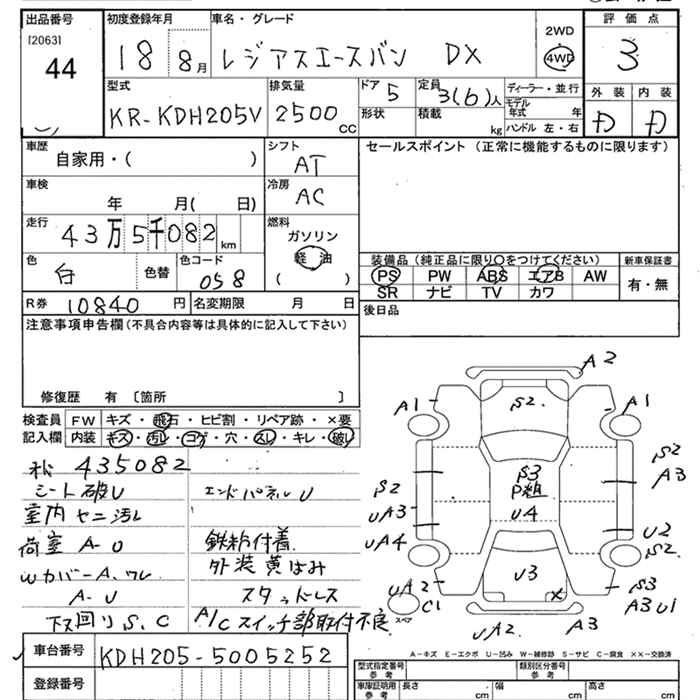 出品番号 初度登録年月 車名・グレード 評価点
[2063] 44
18 8月 レジアスエースバン DX
2WD 4WD
3
外装 内装
D D
型式 排気量 ドア 5 定員 3(6)人 ディーラー・並行
KR-KDH205V 2500cc 形状 積載 kg モデル年式 年
ハンドル 左・右
車歴 自家用・( ) シフト AT セールスポイント (正常に機能するものに限ります)
車検 年 月( 日) 冷房 AC
走行 43万5千082km 燃料 ガソリン 軽油 ( )
色 白 色替 色コード 058
装備品 (純正品に限り○をつけてください) 新車保証書
PS PW ABS エアB AW 有・無
SR ナビ TV カワ
R券 10840円 名変期限 月 日 後日品
注意事項申告欄 (不具合内容等は具体的に記入して下さい)
修復歴 有 〔箇所 〕
検査員 FW キズ・飛石・ヒビ割・リペア跡・×要
記入欄 内装 キズ・汚レ・コゲ・穴・スレ・キレ・破レ
435082
シート破レ エンドパネルU
室内ヤニ汚レ
荷室 A-U 鉄粉付着
WカバーA、ワレ 外装黄ばみ
A-U スタッドレス
下ス回りS、C A/Cスイッチ部取付不良
A2
A1 S2 A1
S2 S3 S2
P粗 A3
UA3 U4
UA4 U2
S2
UA2 U3 × S3
C1 A3 U1
スペア UA2 A3
A-キズ E-エクボ U-凹み W-補修跡 S-サビ C-腐食 ××-交換済
車台番号 KDH205-5005252
登録番号
型式指定番号 参考 類別区分番号 参考
車庫証明用 参考 長さ cm 幅 cm 高さ cm